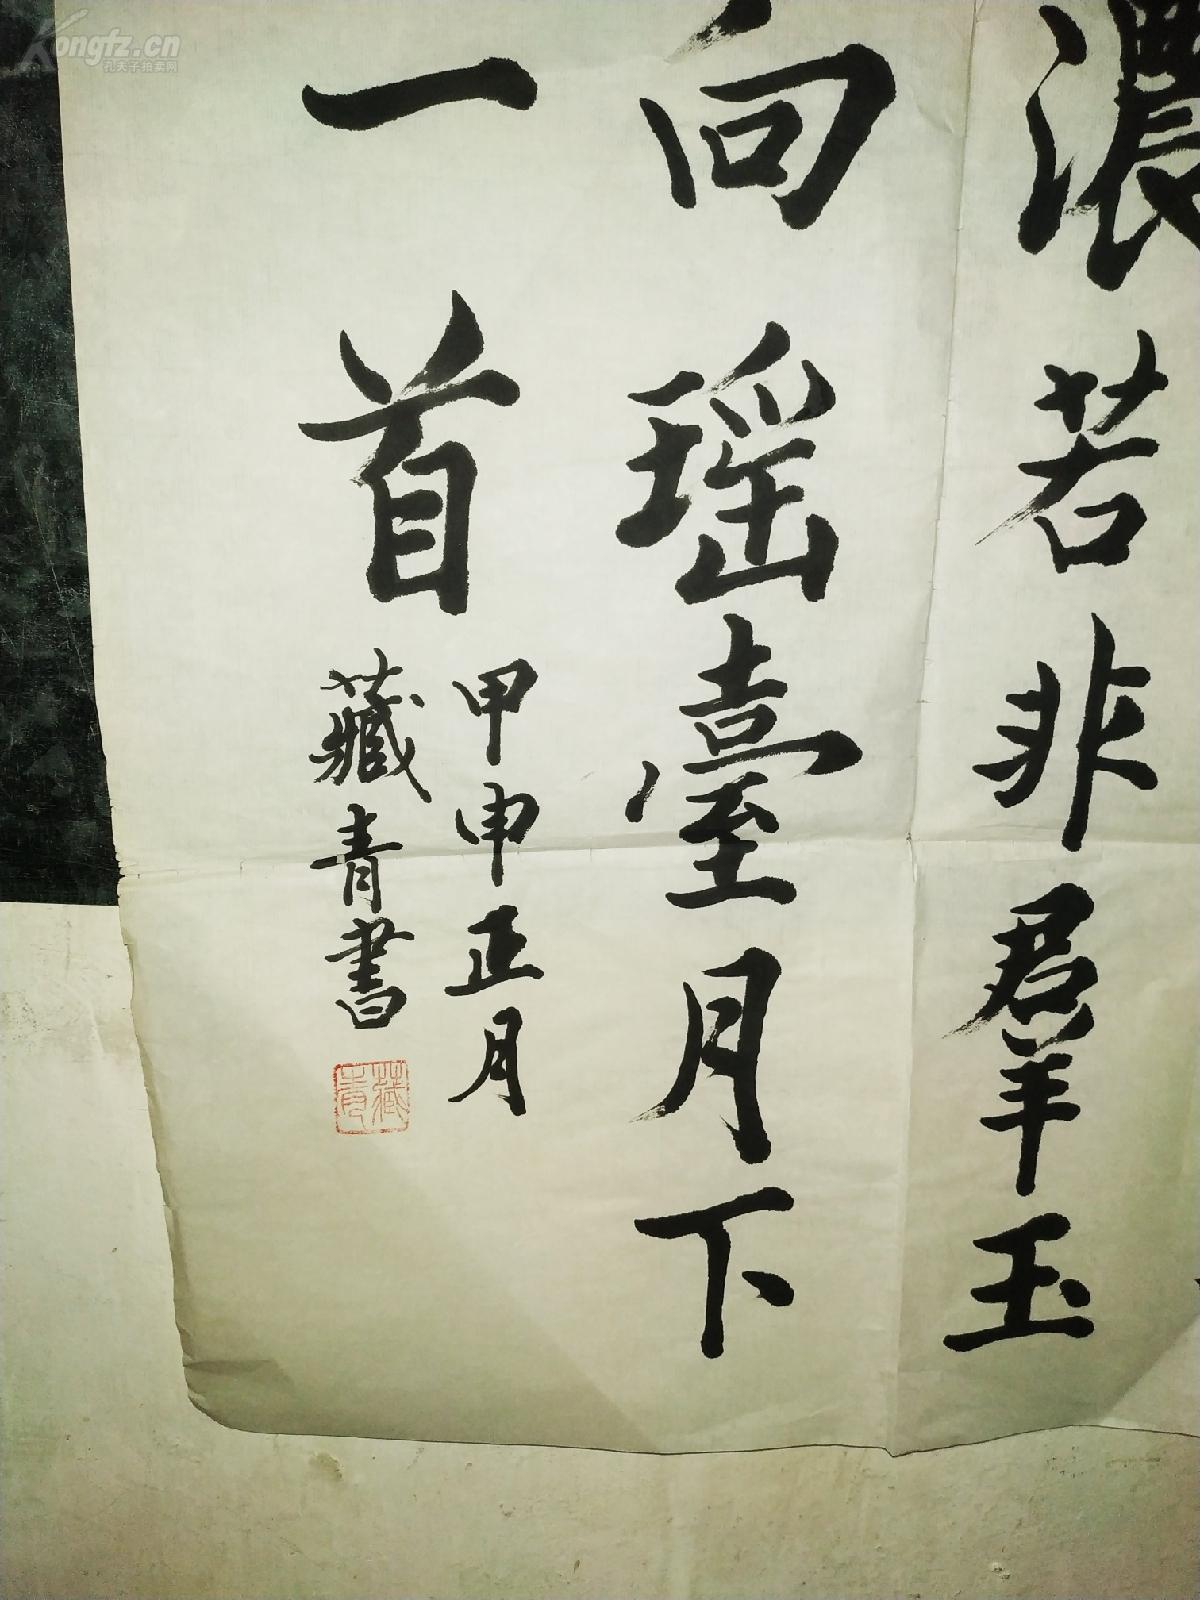 濃若非羣玉
向瑶臺月下
一首
甲申正月
藏青書
藏青
Kongfz.cn
孔夫子拍卖网